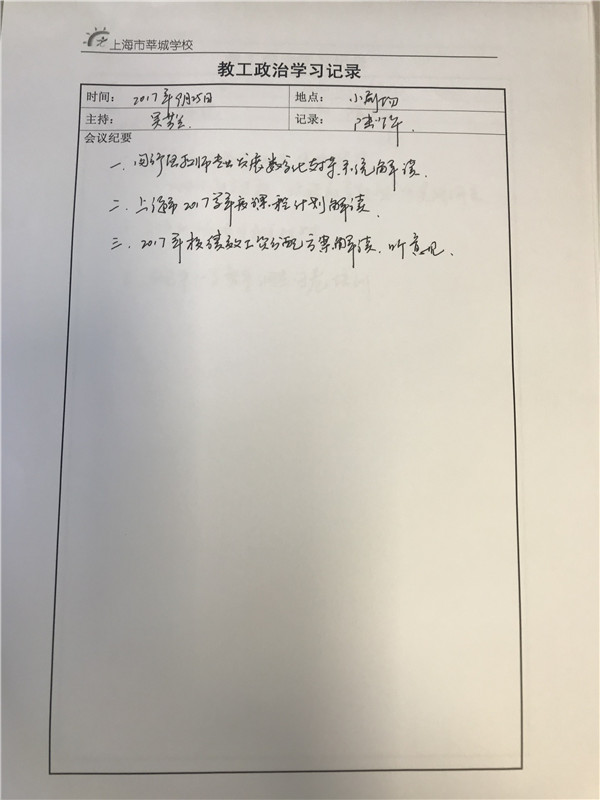 上海市莘城学校
教工政治学习记录
时间: 2017年9月25日 地点: 小剧场
主持: 吴 记录: 陆
会议纪要
一、闵行区教师专业发展数字化支持系统解读.
二、上海市2017学年度课程计划解读.
三、2017年校绩效工资分配方案解读、听意见.